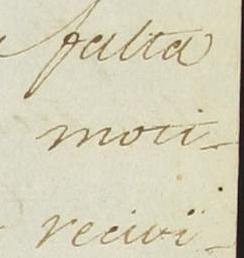 falta
moti-
recivi-